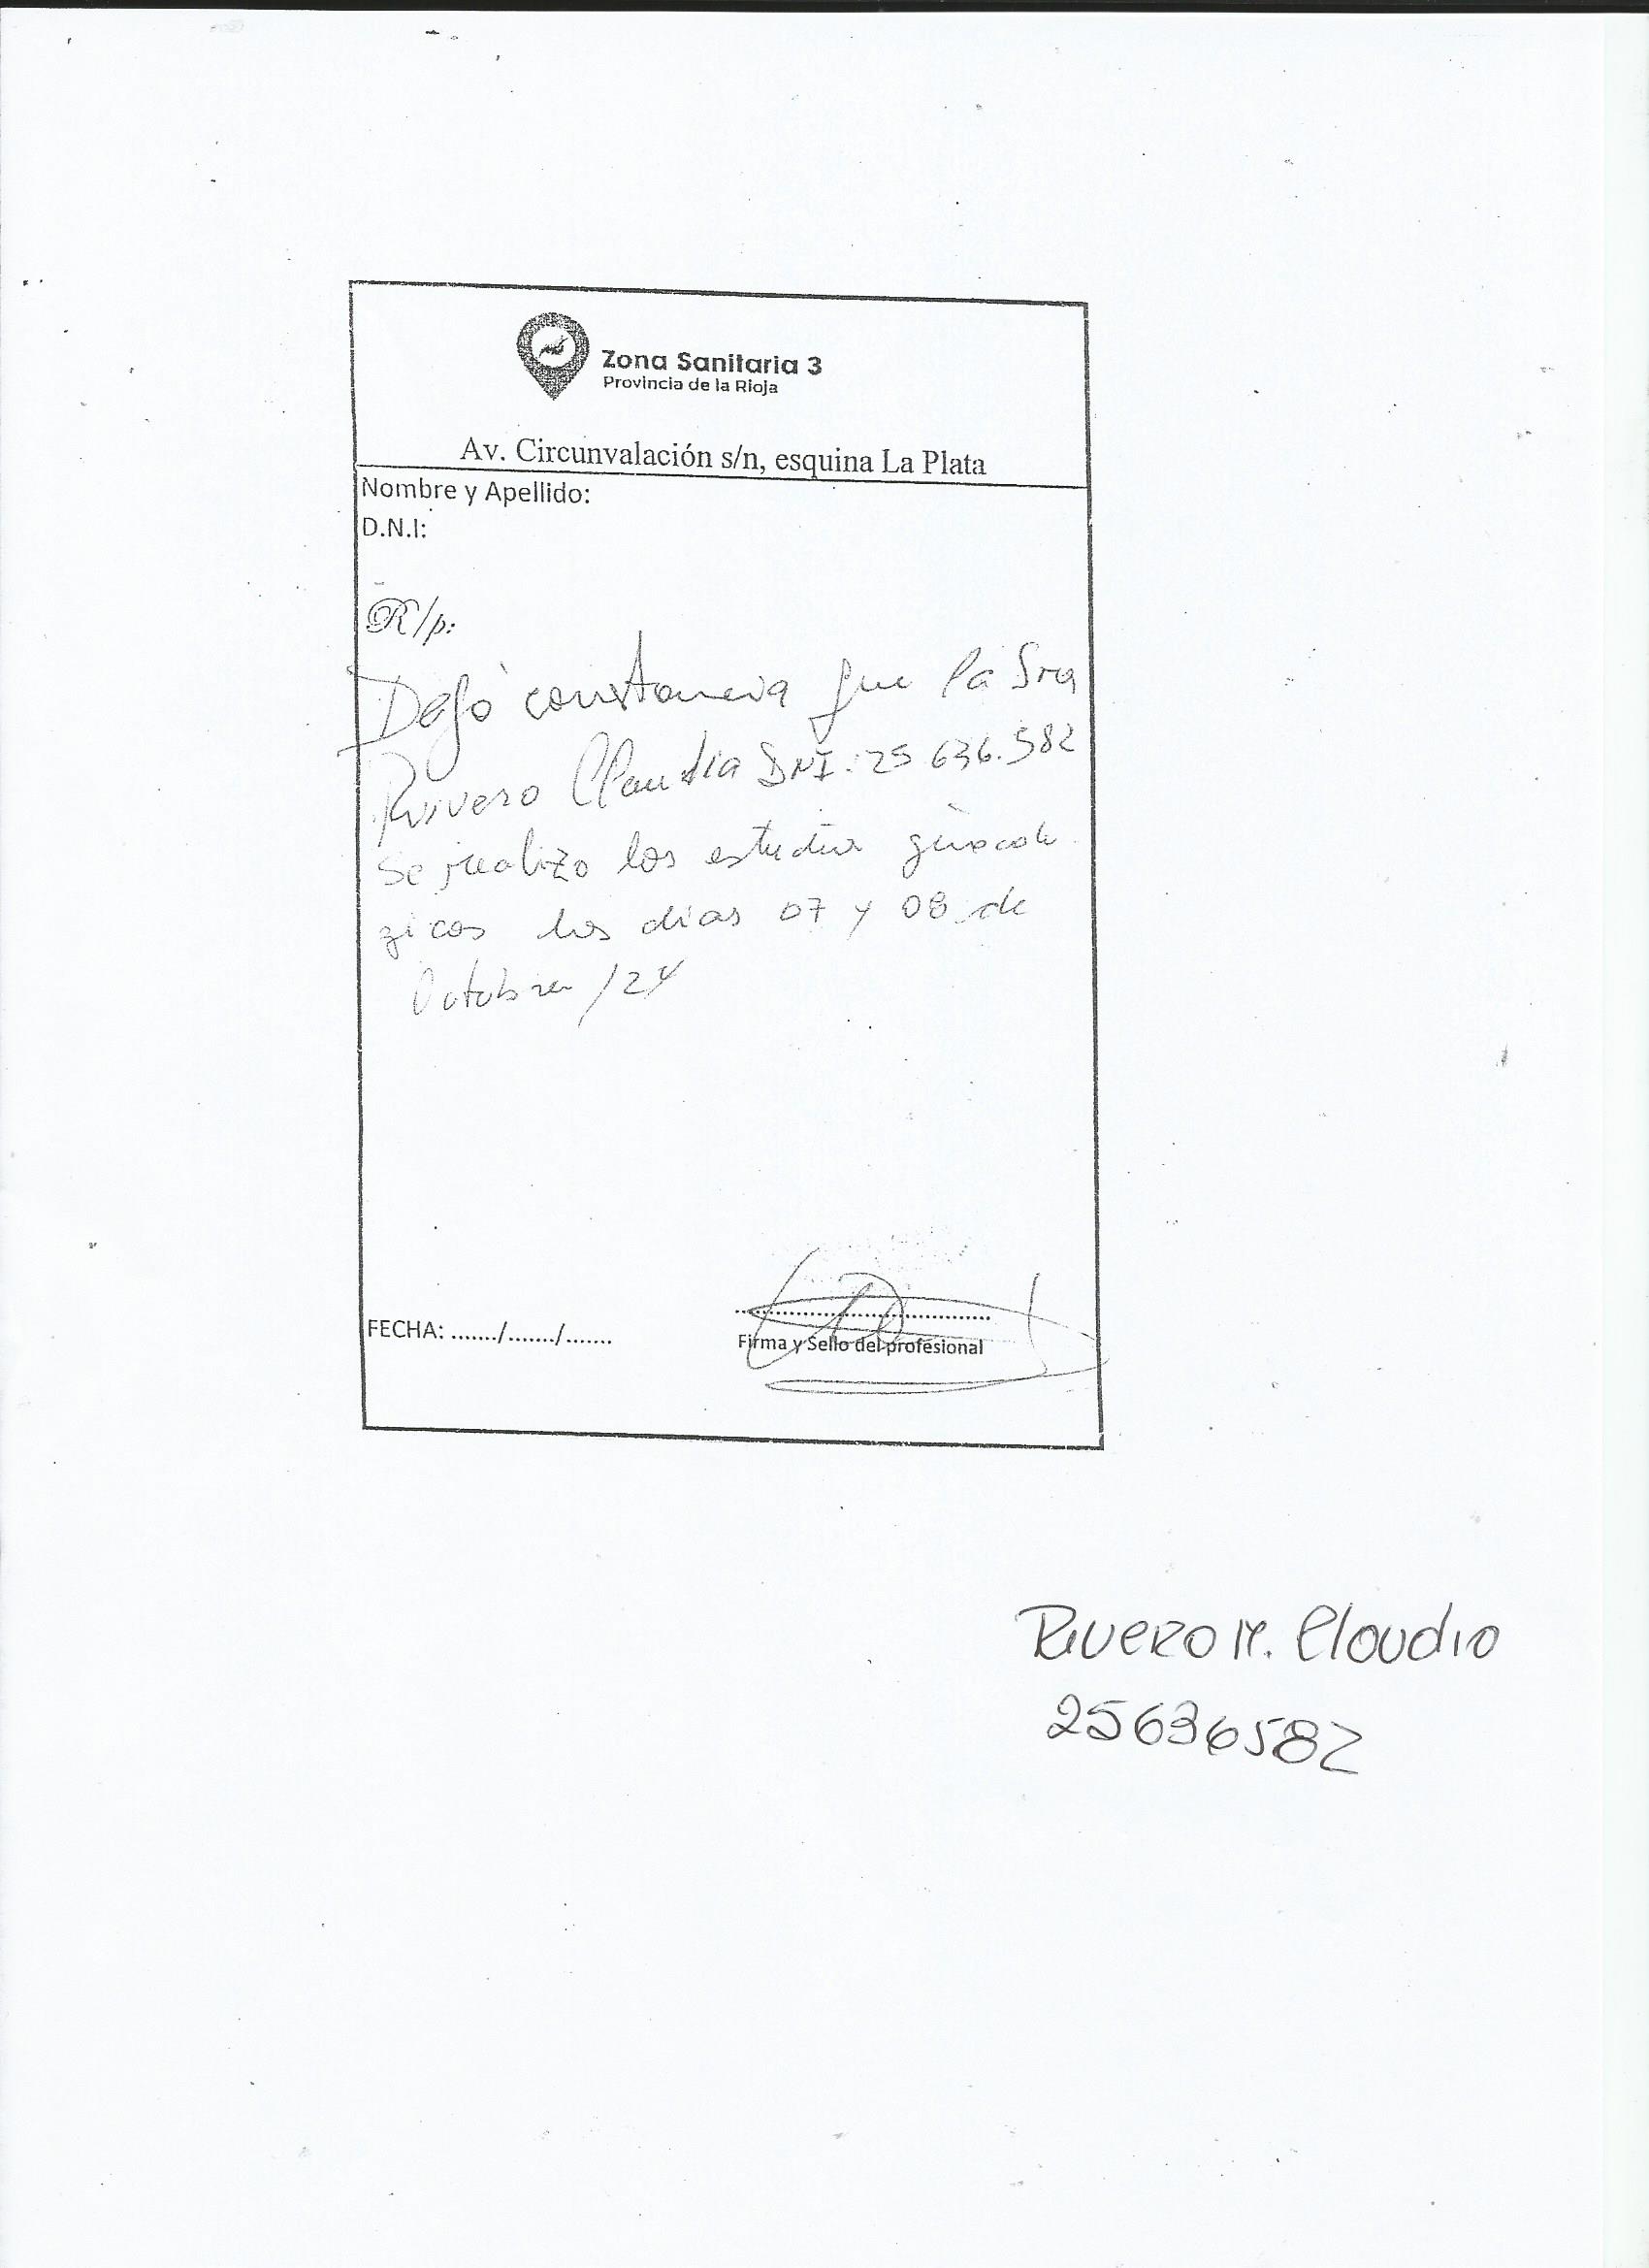 Zona Sanitaria 3
Provincia de la Rioja
Av. Circunvalación s/n, esquina La Plata
Nombre y Apellido:
D.N.I:
R/p:
Dejo constancia que la Sra
Rivero Claudia DNI: 25 636.582
se realizo los estudios ginecoló
gicos los dias 07 y 08 de
Octubre /24
FECHA: ......./......./.......
Firma y Sello del profesional
Rivero M. Claudia
25636582